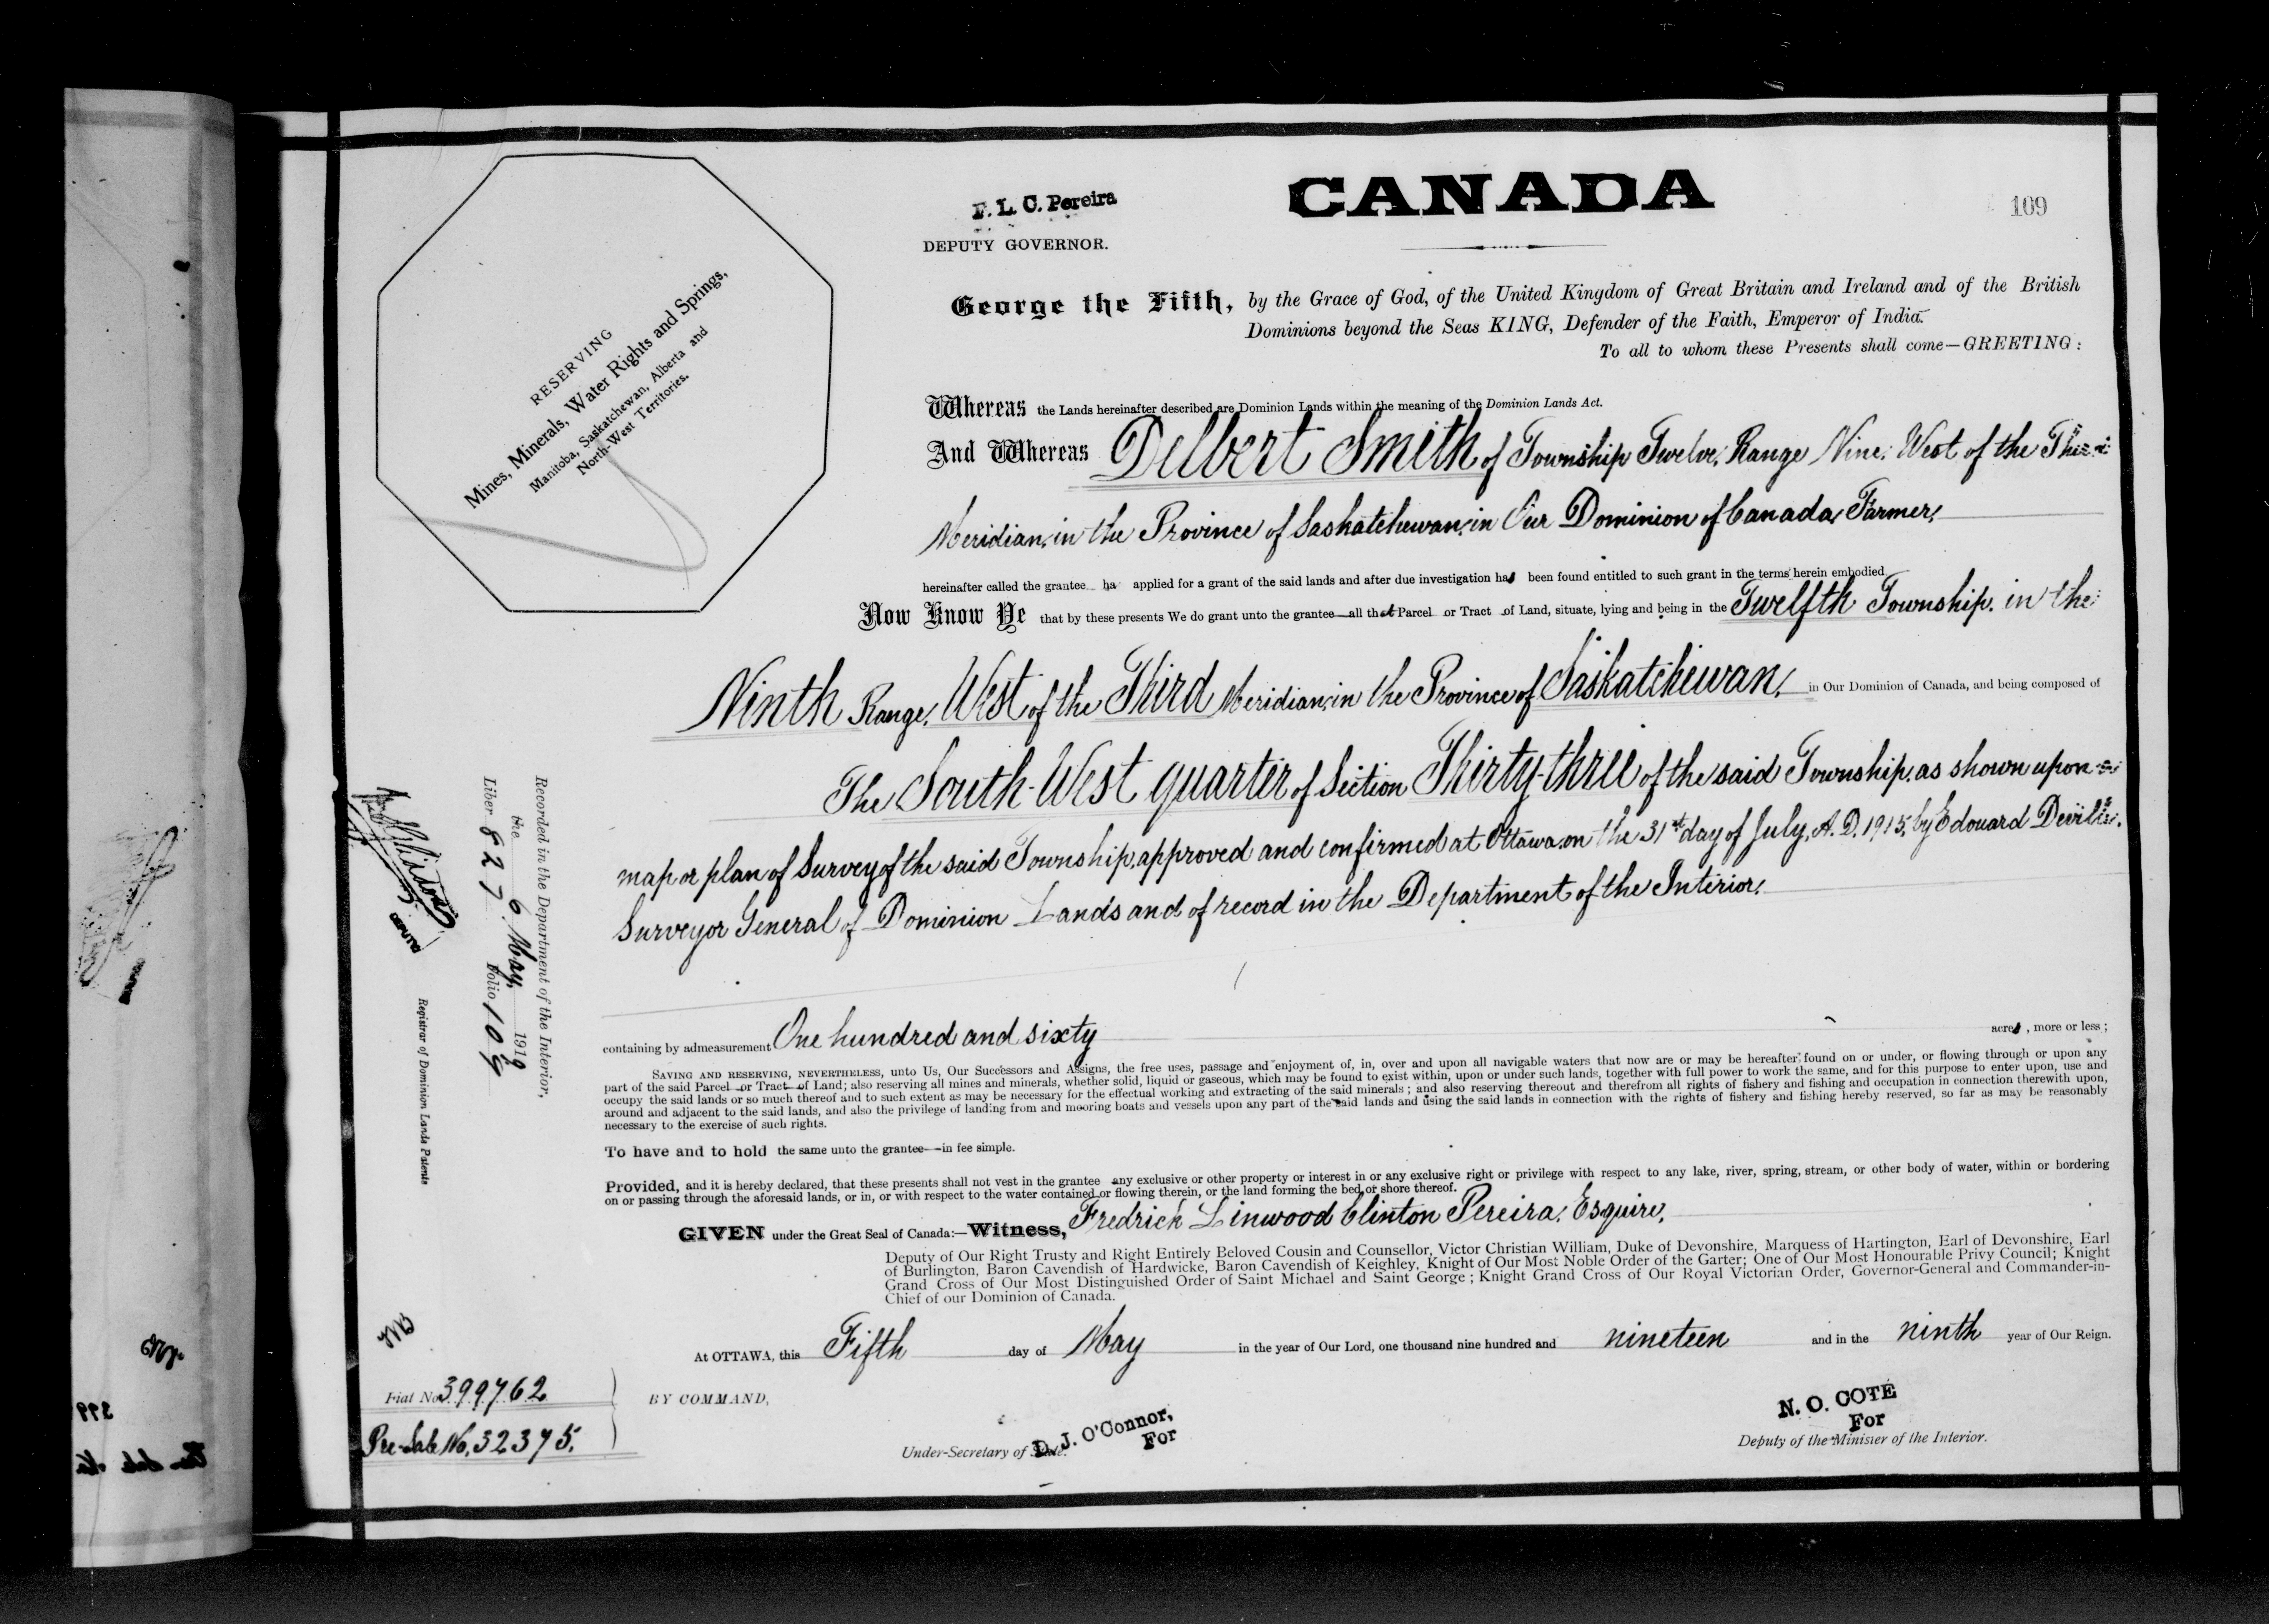 F. L. C. Pereira
DEPUTY GOVERNOR.
CANADA
109
RESERVING
Mines, Minerals, Water Rights and Springs,
Manitoba, Saskatchewan, Alberta and
North-West Territories.
George the Fifth, by the Grace of God, of the United Kingdom of Great Britain and Ireland and of the British
Dominions beyond the Seas KING, Defender of the Faith, Emperor of India.
To all to whom these Presents shall come—GREETING:
Whereas the Lands hereinafter described are Dominion Lands within the meaning of the Dominion Lands Act.
And Whereas Delbert Smith of Township Twelve, Range Nine, West of the Third
Meridian, in the Province of Saskatchewan, in Our Dominion of Canada, Farmer,
hereinafter called the grantee ha applied for a grant of the said lands and after due investigation has been found entitled to such grant in the terms herein embodied
Now Know Ye that by these presents We do grant unto the grantee all that Parcel or Tract of Land, situate, lying and being in the Twelfth Township, in the
Ninth Range, West of the Third Meridian, in the Province of Saskatchewan, in Our Dominion of Canada, and being composed of
The South-West quarter of Section Thirty-three of the said Township, as shown upon a
map or plan of Survey of the said Township, approved and confirmed at Ottawa, on the 31st day of July, A.D. 1915, by Edouard Deville,
Surveyor General of Dominion Lands and of record in the Department of the Interior,
containing by admeasurement One hundred and sixty acres, more or less;
SAVING AND RESERVING, NEVERTHELESS, unto Us, Our Successors and Assigns, the free uses, passage and enjoyment of, in, over and upon all navigable waters that now are or may be hereafter found on or under, or flowing through or upon any
part of the said Parcel or Tract of Land; also reserving all mines and minerals, whether solid, liquid or gaseous, which may be found to exist within, upon or under such lands, together with full power to work the same, and for this purpose to enter upon, use and
occupy the said lands or so much thereof and to such extent as may be necessary for the effectual working and extracting of the said minerals; and also reserving thereout and therefrom all rights of fishery and fishing and occupation in connection therewith upon,
around and adjacent to the said lands, and also the privilege of landing from and mooring boats and vessels upon any part of the said lands and using the said lands in connection with the rights of fishery and fishing hereby reserved, so far as may be reasonably
necessary to the exercise of such rights.
To have and to hold the same unto the grantee—in fee simple.
Provided, and it is hereby declared, that these presents shall not vest in the grantee any exclusive or other property or interest in or any exclusive right or privilege with respect to any lake, river, spring, stream, or other body of water, within or bordering
on or passing through the aforesaid lands, or in, or with respect to the water contained or flowing therein, or the land forming the bed or shore thereof.
GIVEN under the Great Seal of Canada:—Witness, Fredrick Linwood Clinton Pereira, Esquire,
Deputy of Our Right Trusty and Right Entirely Beloved Cousin and Counsellor, Victor Christian William, Duke of Devonshire, Marquess of Hartington, Earl of Devonshire, Earl
of Burlington, Baron Cavendish of Hardwicke, Baron Cavendish of Keighley, Knight of Our Most Noble Order of the Garter; One of Our Most Honourable Privy Council; Knight
Grand Cross of Our Most Distinguished Order of Saint Michael and Saint George; Knight Grand Cross of Our Royal Victorian Order, Governor-General and Commander-in-
Chief of our Dominion of Canada.
At OTTAWA, this Fifth day of May in the year of Our Lord, one thousand nine hundred and nineteen and in the ninth year of Our Reign.
BY COMMAND,
D. J. O'Connor,
For
Under-Secretary of State.
N. O. COTÉ
For
Deputy of the Minister of the Interior.
Recorded in the Department of the Interior,
the 6 May, 1919
Liber 827 Folio 109
DEPUTY
Registrar of Dominion Lands Patents
Fiat No. 399762
Pre-Sale No. 32375.